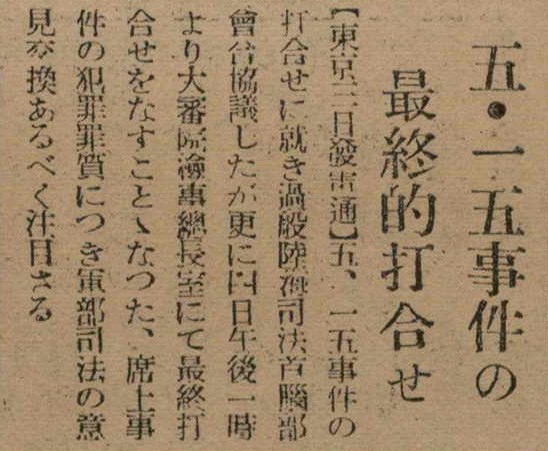 五・一五事件の
最終的打合せ
【東京三日發電通】五、一五事件の
打合せに就き過般陸海司法首腦部
會合協議したが更に四日午後一時
より大審院檢事總長室にて最終打
合せをなすことゝなつた、席上事
件の犯罪罪質につき軍部司法の意
見交換あるべく注目さる